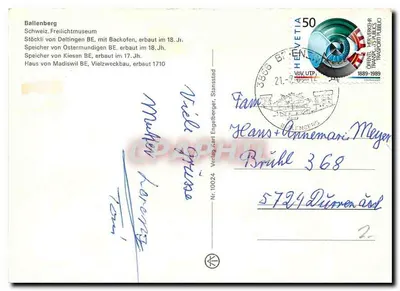 Ballenberg
Schweiz. Freilichtmuseum
Stöckli von Detligen BE, mit Backofen, erbaut im 18. Jr.
Speicher von Ostermundigen BE, erbaut im 18. Jh.
Speicher von Kiesen BE, erbaut im 17. Jh.
Haus von Madiswil BE, Vielzweckbau, erbaut 1710
Viele Grüsse
Mutter Lorenz
Toni
Nr. 10024 Verlag Carl Engelberger, Stansstad
HELVETIA
50
VöV, UTP
1889-1989
3855 BRIENZ
BALLENBERG
Fam.
Hans+Annemari Meyer
Brühl 368
5724 Dürrenäsch
2.-